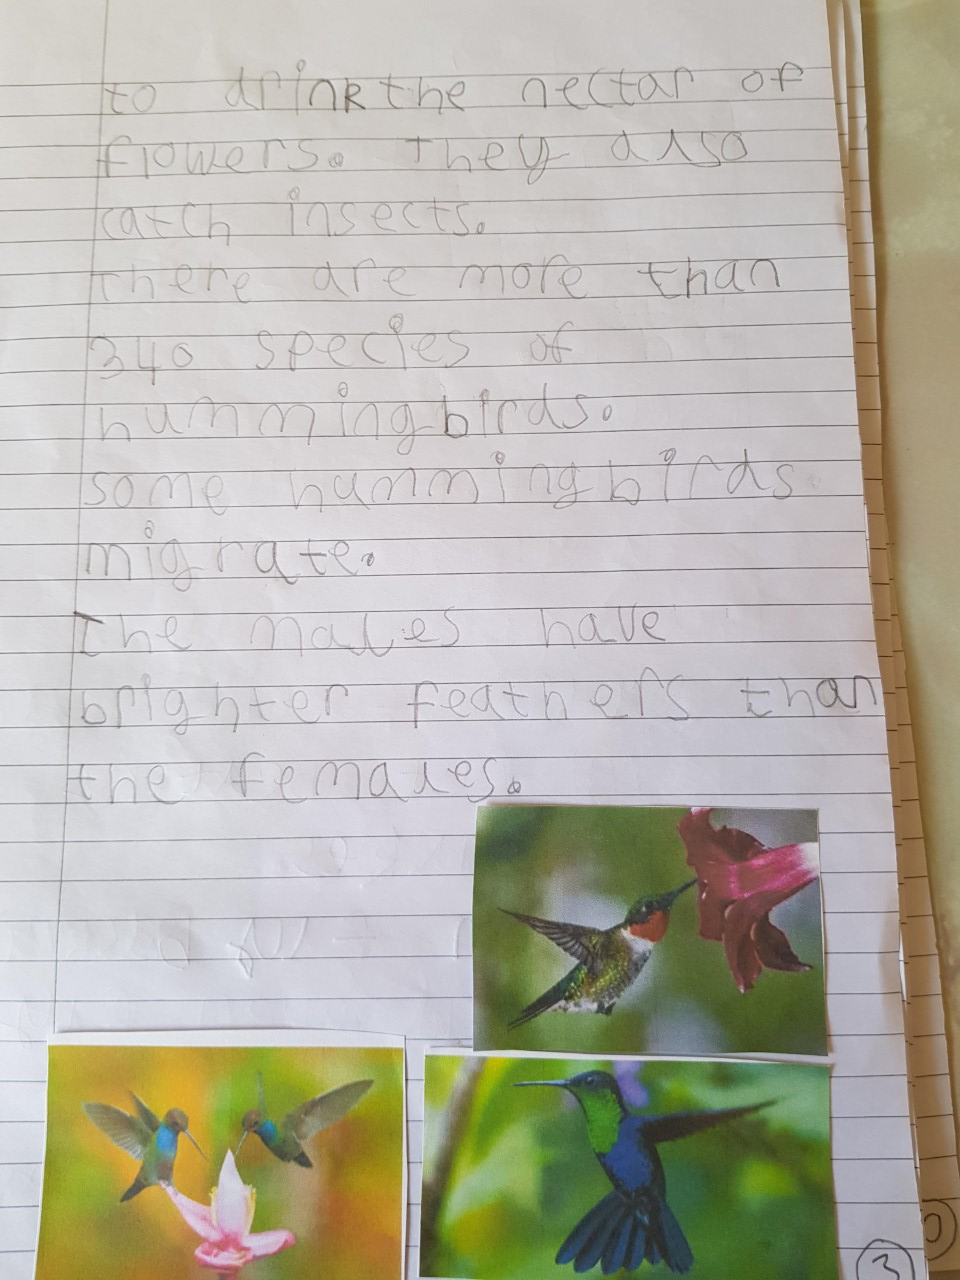 to drink the nectar of
flowers. they also
catch insects.
there are more than
340 species of
hummingbirds.
some hummingbirds
migrate.
The males have
brighter feathers than
the females.
3